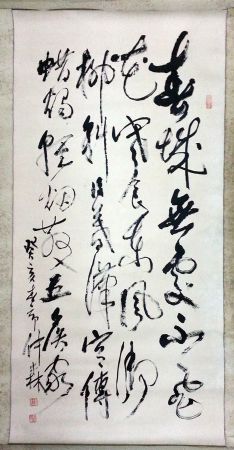 春城無處不飛
花寒食東風御
柳斜日暮漢宮傳
蜡燭輕烟散入五侯家
癸亥春仲森